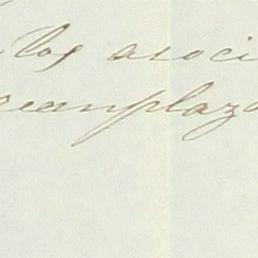 Los asoci
reemplaza